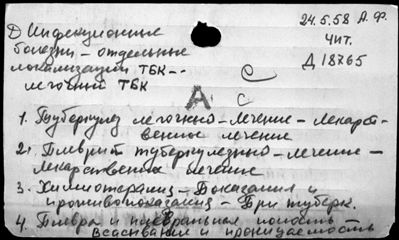 24.5.58 А.Ф.
Д Инфекционные
чит.
болезни – отдельные
Д 18765
локализации ТБК –
легочный ТБК
А
С
1. Туберкулез легочный – лечение – лекарст-
венное лечение
2. Плеврит туберкулезный – лечение –
лекарственное лечение
3. Химиотерапия – Показания и
противопоказания – При туберк.
4. Плевра и плевральная полость –
всасывание и проницаемость